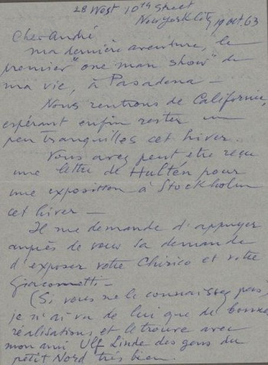 28 West 10th Street
New York City 19 oct. 63
Cher André,
ma dernière aventure, le
premier "one man show" de
ma vie, à Pasadena –
Nous rentrons de Californie,
espérant enfin rester un
peu tranquilles cet hiver.
Vous avez peut être reçu
une lettre de Hultén pour
une exposition à Stockholm
cet hiver –
Il me demande d'appuyer
auprès de vous sa demande
d'exposer votre Chirico et votre
Giacometti –
(Si vous ne le connaissez pas,
je n'ai vu de lui que de bonnes
réalisations, et le trouve avec
mon ami Ulf Linde des gens du
petit Nord très bien.